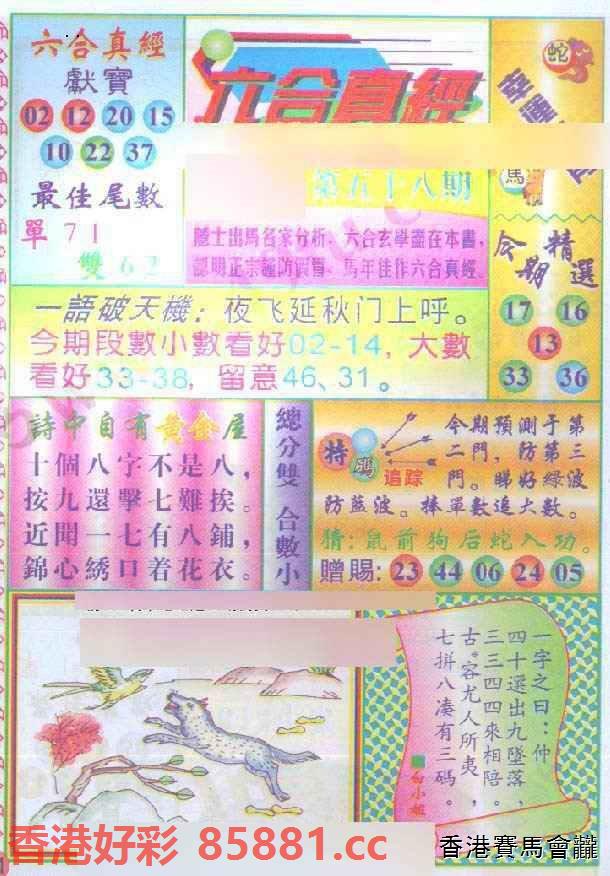 六合真經
獻寶
02 12 20 15
10 22 37
最佳尾數
單 71
雙 62
六合真經
第五十八期
隱士出馬名家分析、六合玄學盡在本書，
認明正宗謹防假冒、馬年佳作六合真經。
蛇
馬
今期精選
17 16
13
33 36
一語破天機：夜飞延秋门上呼。
今期段數小數看好02-14，大數
看好33-38，留意46、31。
詩中自有黃金屋
十個八字不是八，
按九還擊七難挨。
近聞一七有八鋪，
錦心綉口着花衣。
總分雙 合數小
特
碼
追踪
今期預測于第
二門，防第三
門。睇好綠波
防藍波。捧單數追大數。
猜：鼠前狗后蛇入功。
赠賜：23 44 06 24 05
一字之曰：仲
四十選出九墜落，
三三四四來相陪。
古.容尤人所夷，
七拼八凑有三碼。
白小姐
香港好彩 85881.cc
香港賽馬會